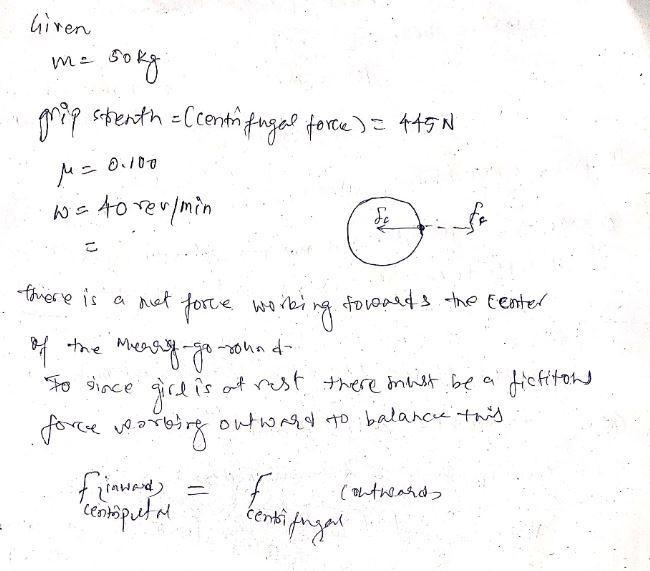 Given
m = 50kg
grip strenth = (centrifugal force) = 445N
μ = 0.100
w = 40 rev/min
=
fc fc
there is a net force working towards the center
of the merry-go-round
so since girl is at rest there must be a fictitous
force working outward to balance this
f(inward) = f (outwards
centripetal centrifugal